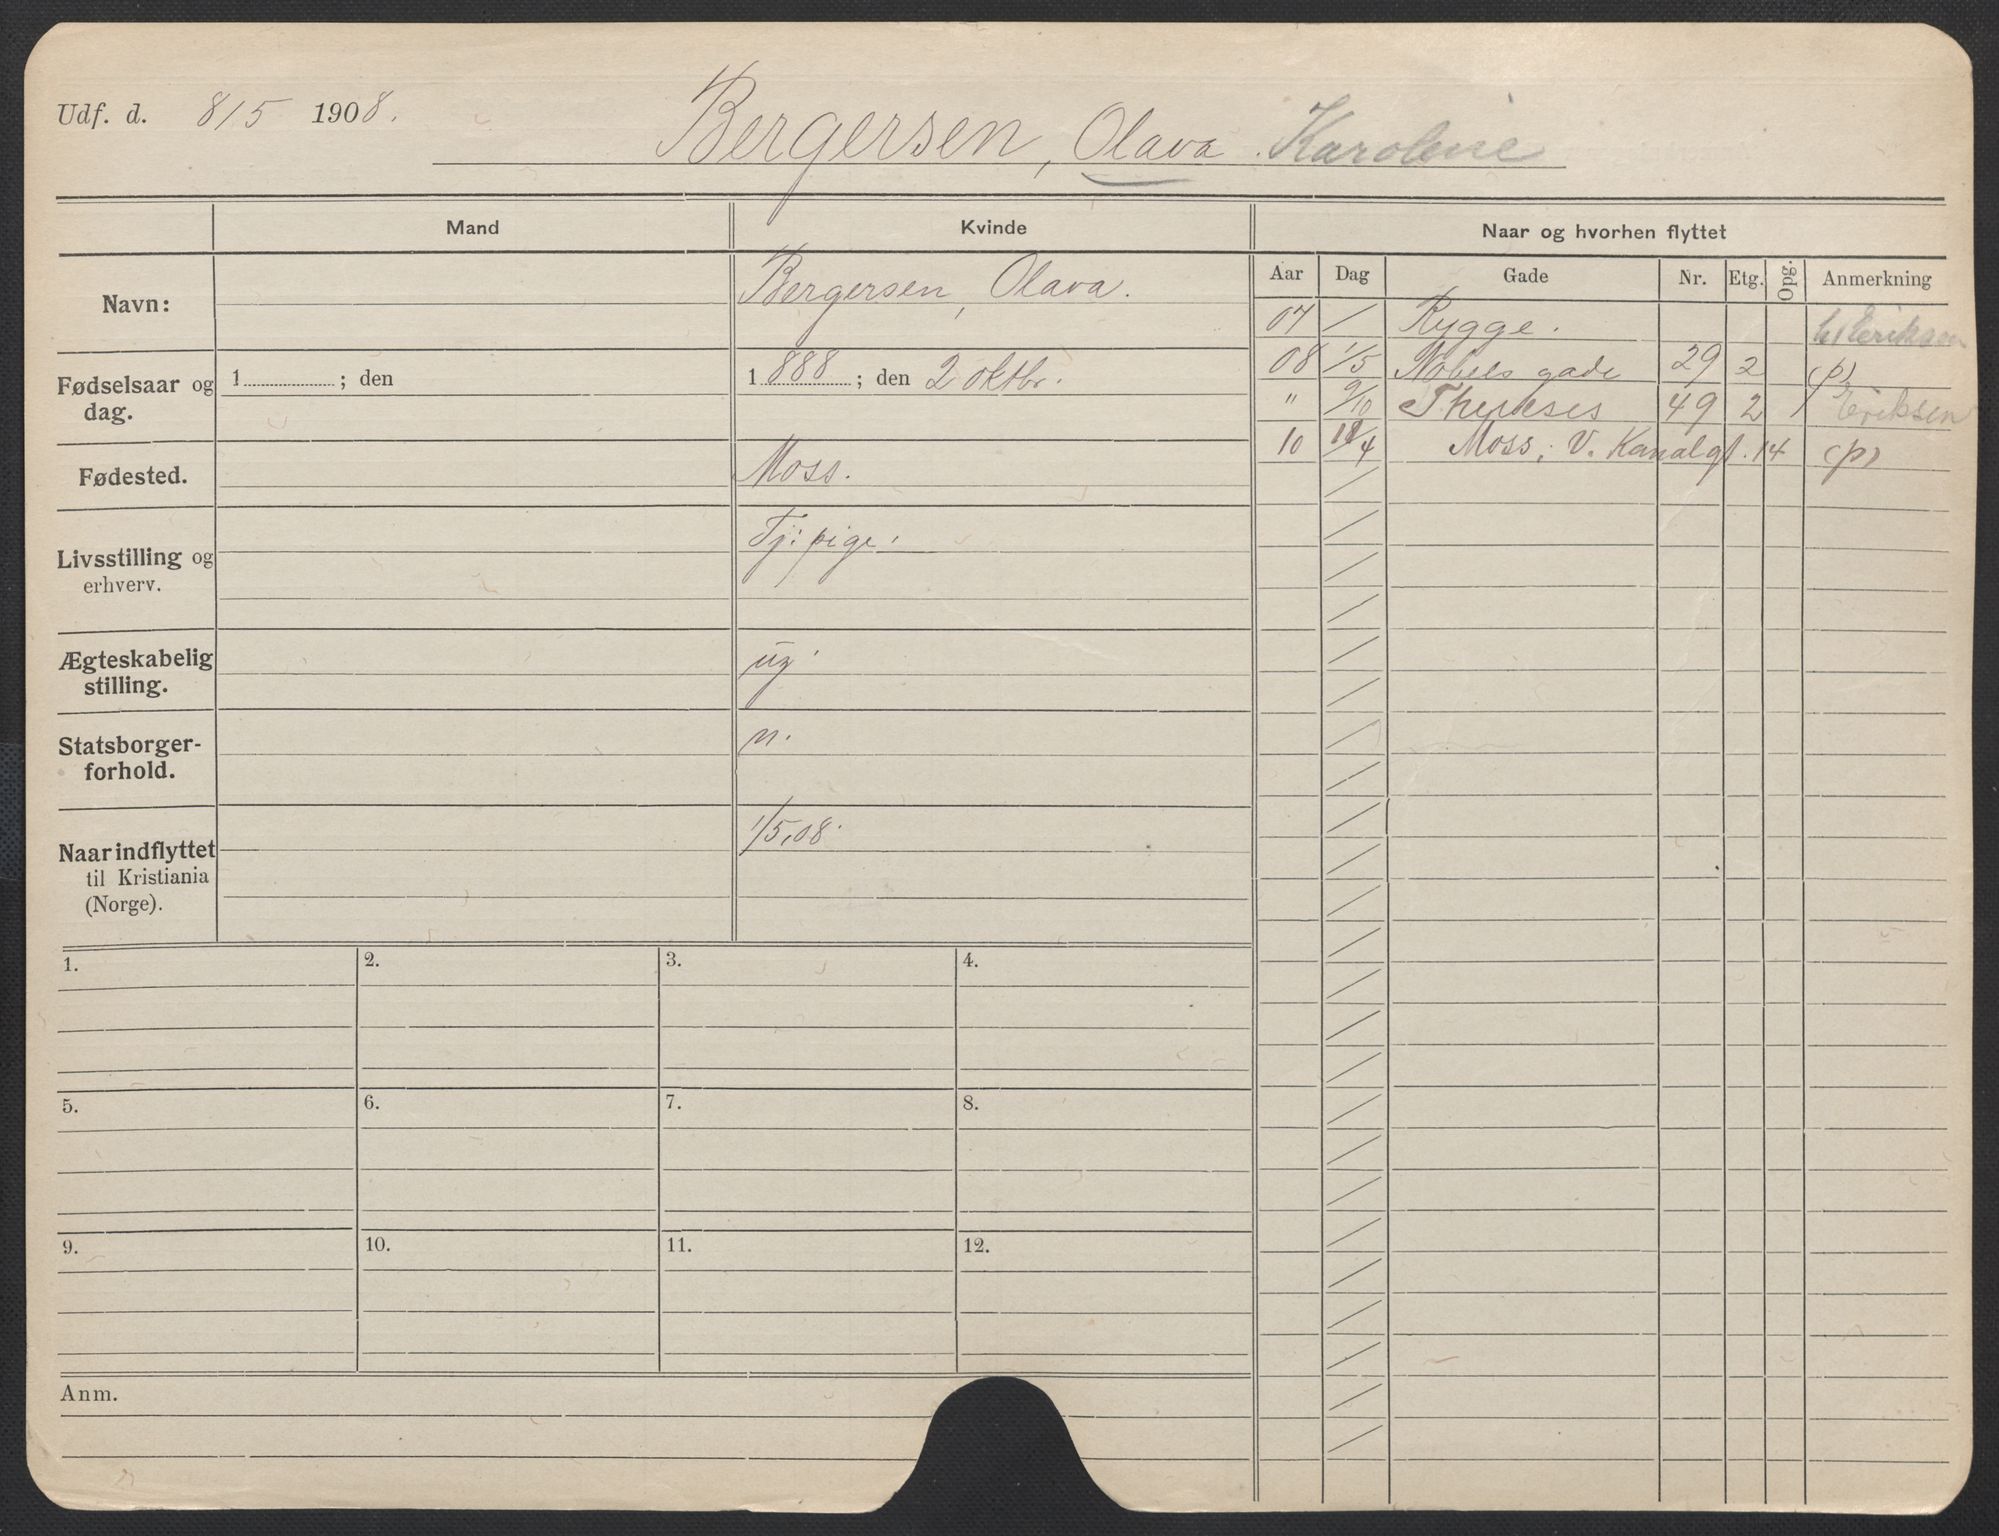 Udf. d. 8/5 1908.
Bergersen, Olava. Karoline
Mand
Kvinde
Naar og hvorhen flyttet
Aar Dag Gade Nr. Etg. Opg. Anmerkning
Navn:
Bergersen, Olava.
Fødselsaar og
dag.
1 ; den
1888 ; den 2 oktbr.
Fødested.
Moss.
Livsstilling og
erhverv.
Tj: pige.
Ægteskabelig
stilling.
ug.
Statsborger-
forhold.
n.
Naar indflyttet
til Kristiania
(Norge).
1/5.08.
07 / Rygge. Eriksen
08 1/5 Nobels gade 29 2 (p)
" 9/10 Thereses 49 2 / Eriksen
10 /4 Moss, V. Kanalgt. 14 (p)
1. 2. 3. 4.
5. 6. 7. 8.
9. 10. 11. 12.
Anm.